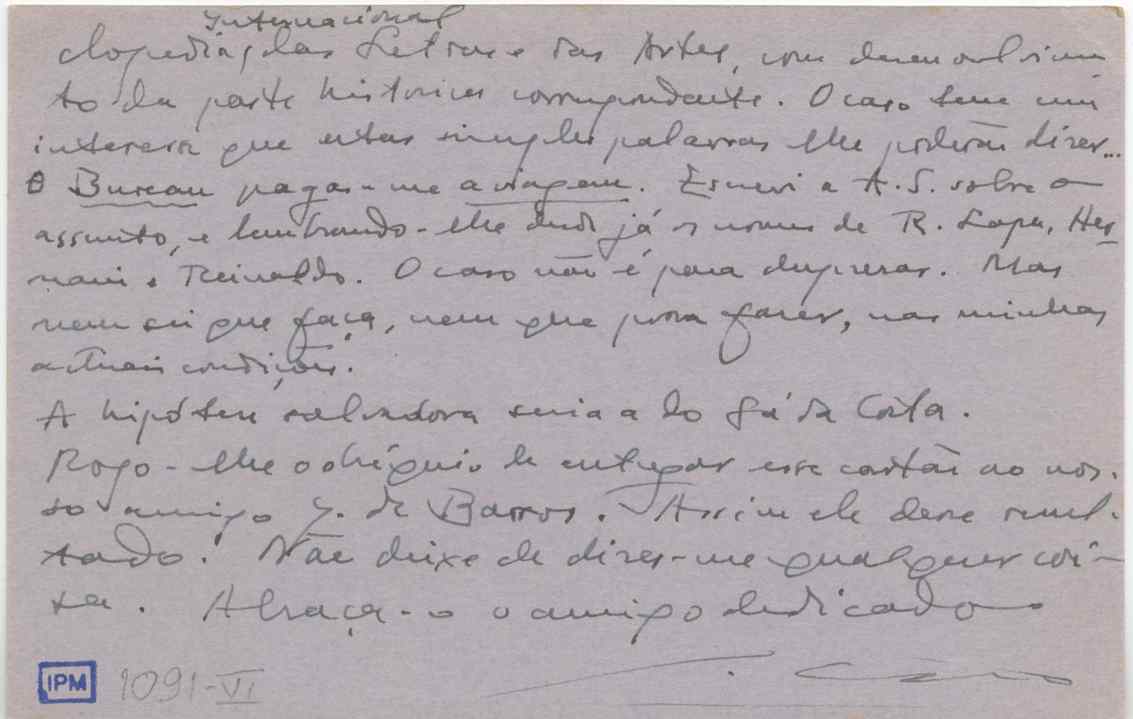 Internacional
clopedia das Letras e das Artes, com desenvolvimen-
to da parte historica correspondente. O caso tem um
interesse que estas simples palavras lhe poderão dizer...
O Bureau pagar-me a viagem. Escrevi a A. S. sobre o
assunto, e lembrando-lhe desde já os nomes de R. Lapa, Her-
nani e Reinaldo. O caso não é para desprezar. Mas
nem sei que faça, nem que possa fazer, nas minhas
actuais condições.
A hipótese salvadora seria a do Sá da Costa.
Rogo-lhe o obséquio de entregar esse cartão ao nos-
so amigo J. de Barros. Assim ele desse resul-
tado! Não deixe de dizer-me qualquer coi-
sa. Abraça-o o amigo dedicado
IPM 1091-VI